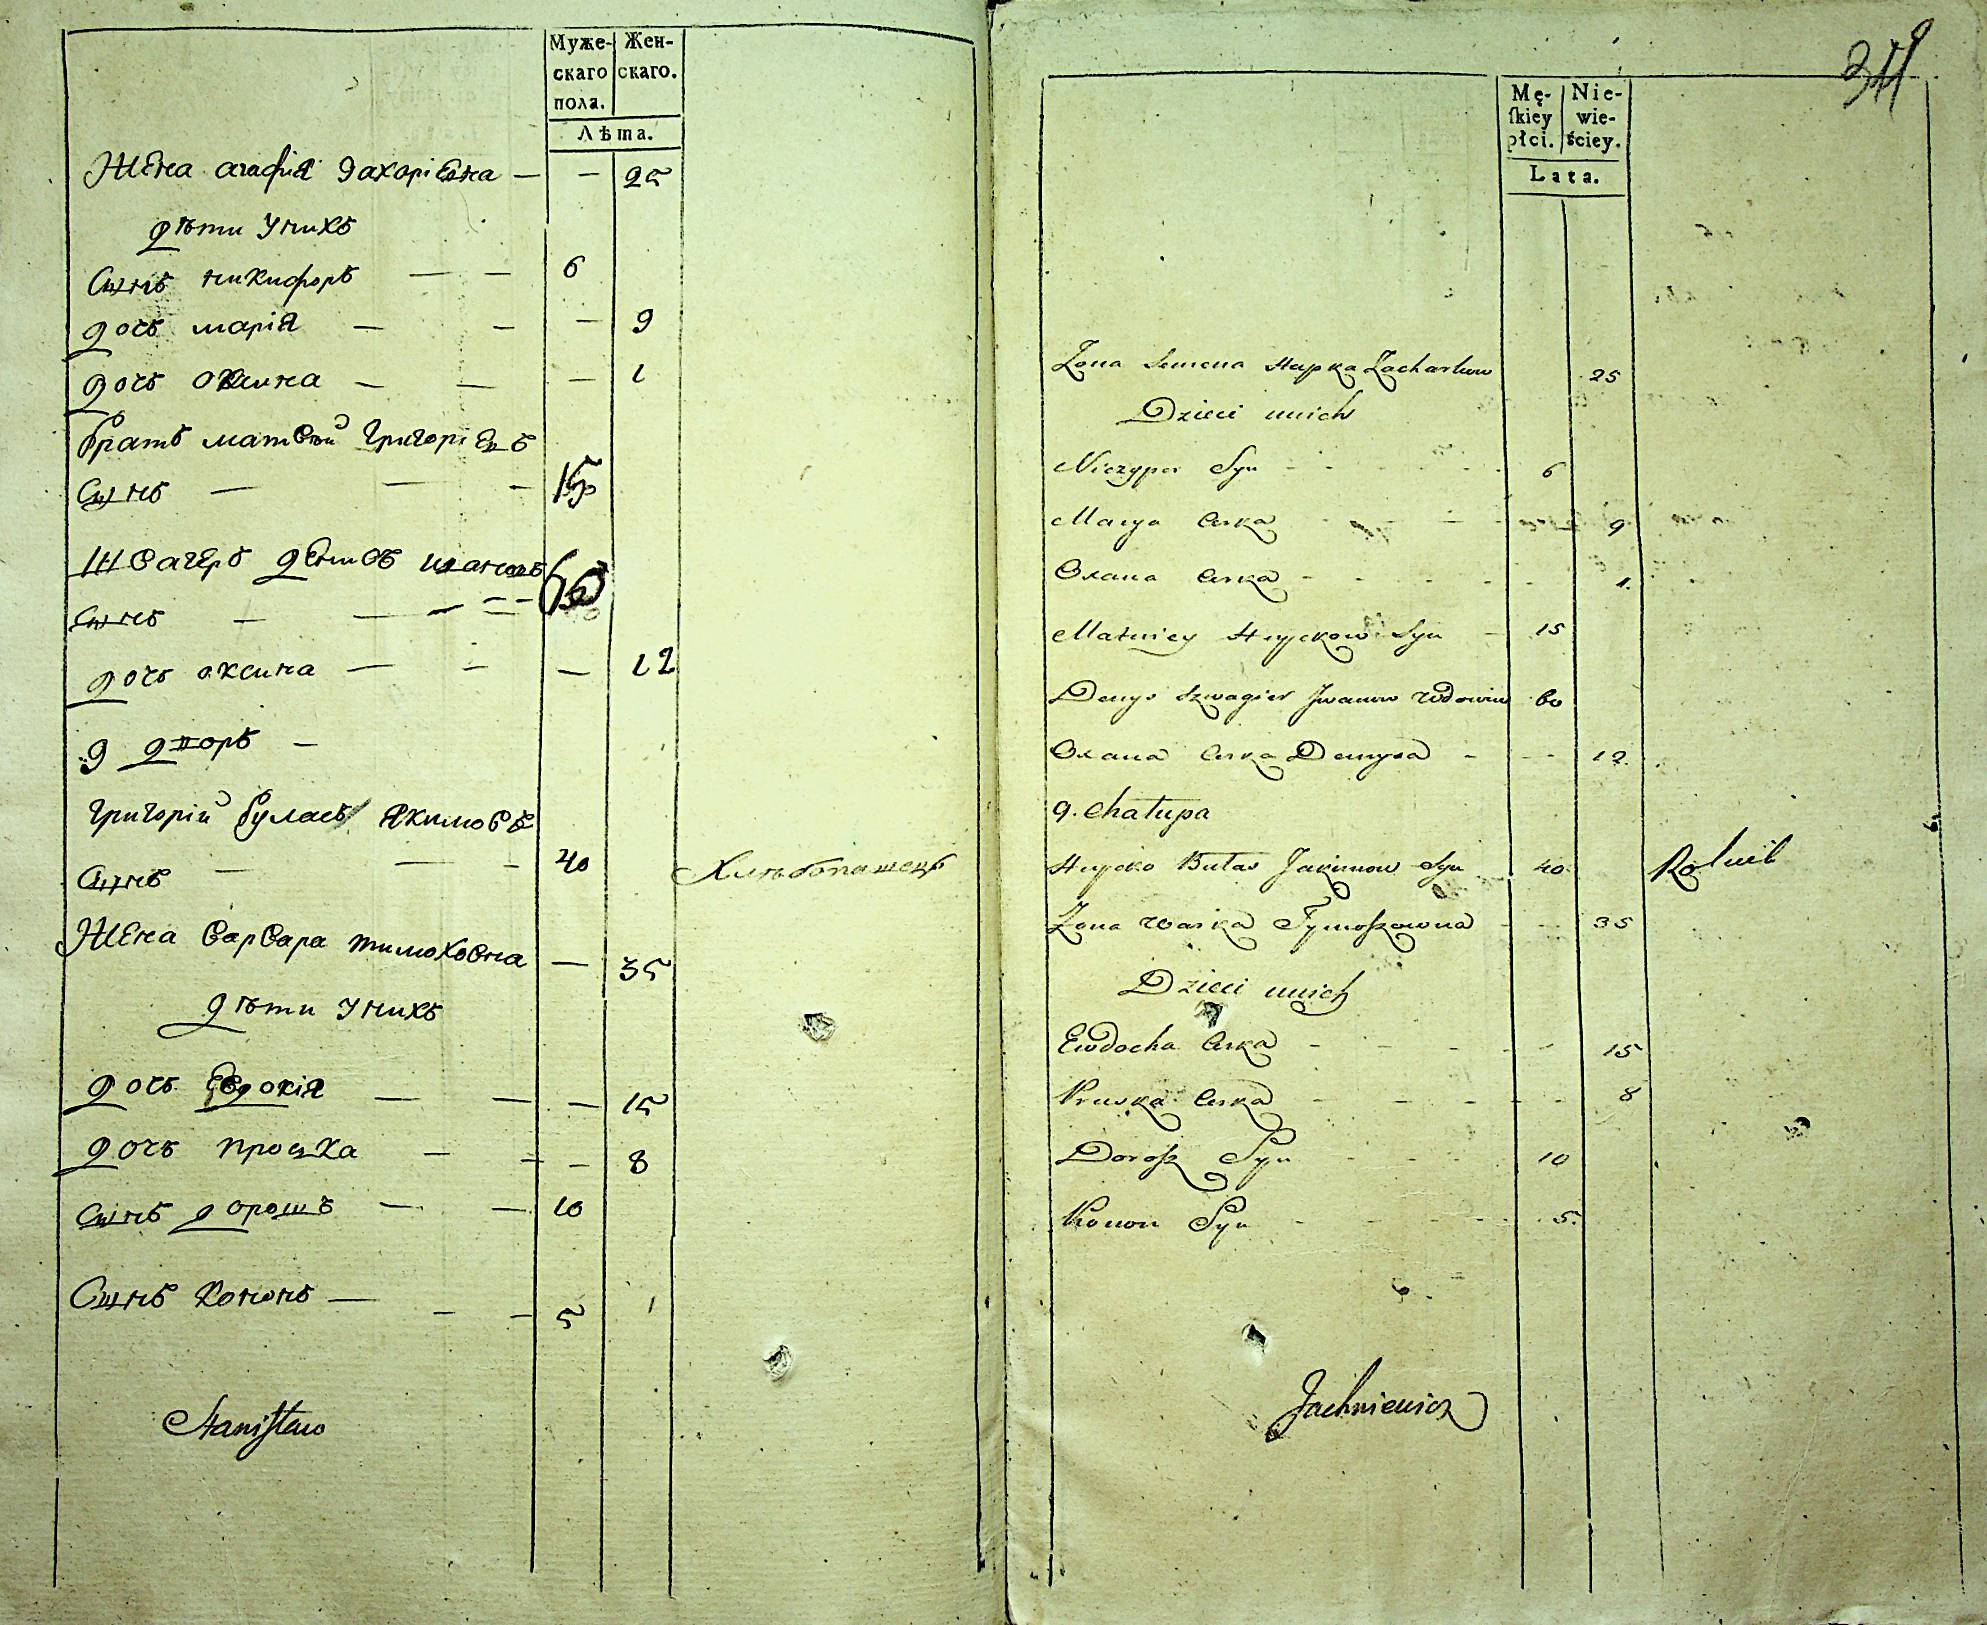 Муже-
скаго
пола.
Жен-
скаго.
Лѣта.
Жена агафія Захоріевна — — 25
дѣти У нихъ
Сынъ никифоръ — — 6
дочъ марія — — — 9
дочъ оксина — — — 1
братъ матвѣй Григоріевъ
Сынъ — — — 15
Швагеръ денисъ ивановъ
сынъ — — — 60
дочъ оксина — — — 12
9 дворъ —
Григорій булась якимовъ
Сынъ — — — 40 Хлѣбопашецъ
Жена варвара тимоховна — 35
дѣти У нихъ
дочъ Евдокія — — — 15
дочъ проська — — — 8
сынъ дорошъ — — 10
Сынъ кононъ — — — 5
Stanisław
Mę-
skiey
płci.
Nie-
wie-
ściey.
Lata.
Zona Semena Hapka Zacharkow 25
Dzieci unich
Niczypor Syn - - - 6
Marya Curka - - - 9
Oxana Curka - - - 1.
Matwiey Hryckow Syn - 15
Denys Szwagier Jwanow Wdowiec 60
Oxana Curka Denysa - - - 12.
9. Chałupa
Hrycko Bułas Jakimow Syn 40. Rolnik
Zona Waska Tymoszowna - - 35
Dzieci unich
Ewdocha Curka - - - 15
Pruska Curka - - - 8
Dorosz Syn - - - 10
Konon Syn - - - 5.
Jachniewicz